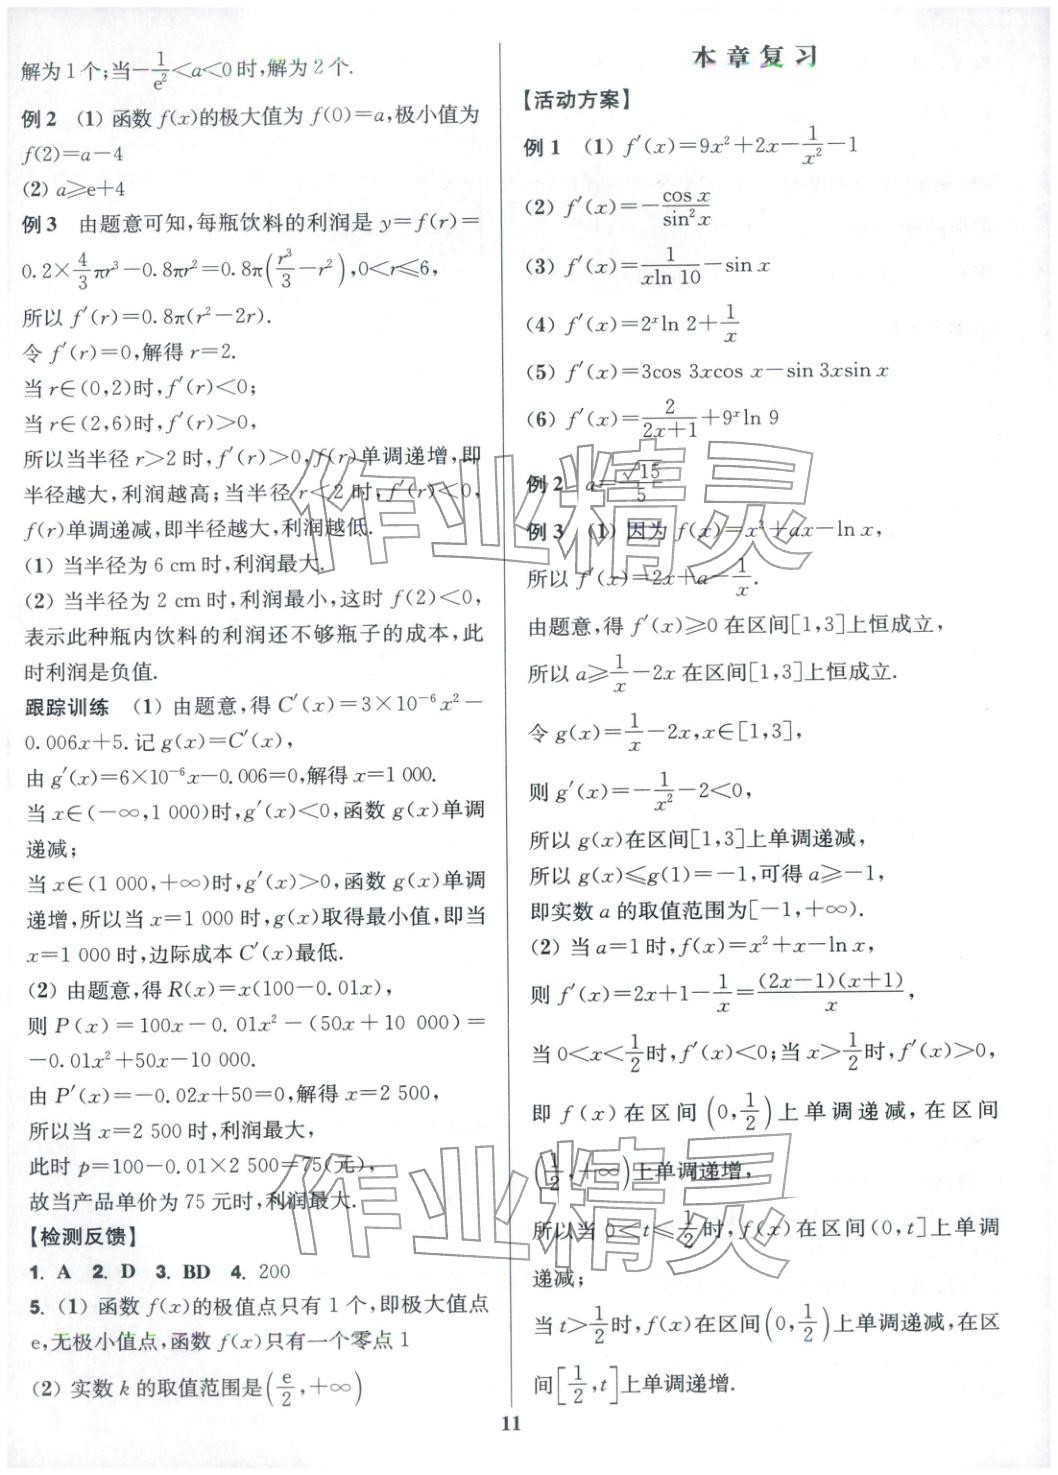 解为1个;当-1/e²<a<0时,解为2个.
例2 (1) 函数 f(x)的极大值为 f(0)=a,极小值为
f(2)=a-4
(2) a≥e+4
例3 由题意可知,每瓶饮料的利润是 y=f(r)=
0.2×4/3πr³-0.8πr²=0.8π(r³/3-r²),0<r≤6,
所以 f′(r)=0.8π(r²-2r).
令 f′(r)=0,解得 r=2.
当 r∈(0,2)时,f′(r)<0;
当 r∈(2,6)时,f′(r)>0,
所以当半径 r>2 时,f′(r)>0,f(r)单调递增,即
半径越大,利润越高;当半径 r<2 时,f′(r)<0,
f(r)单调递减,即半径越大,利润越低.
(1) 当半径为 6 cm 时,利润最大.
(2) 当半径为 2 cm 时,利润最小,这时 f(2)<0,
表示此种瓶内饮料的利润还不够瓶子的成本,此
时利润是负值.
跟踪训练 (1) 由题意,得 C′(x)=3×10⁻⁶x²-
0.006x+5.记 g(x)=C′(x),
由 g′(x)=6×10⁻⁶x-0.006=0,解得 x=1 000.
当 x∈(-∞,1 000)时,g′(x)<0,函数 g(x)单调
递减;
当 x∈(1 000,+∞)时,g′(x)>0,函数 g(x)单调
递增,所以当 x=1 000 时,g(x)取得最小值,即当
x=1 000 时,边际成本 C′(x)最低.
(2) 由题意,得 R(x)=x(100-0.01x),
则 P(x)=100x-0.01x²-(50x+10 000)=
-0.01x²+50x-10 000.
由 P′(x)=-0.02x+50=0,解得 x=2 500,
所以当 x=2 500 时,利润最大,
此时 p=100-0.01×2 500=75(元),
故当产品单价为 75 元时,利润最大.
【检测反馈】
1. A 2. D 3. BD 4. 200
5. (1) 函数 f(x)的极值点只有 1 个,即极大值点
e,无极小值点,函数 f(x)只有一个零点 1
(2) 实数 k 的取值范围是(e/2,+∞)
本章复习
【活动方案】
例1 (1) f′(x)=9x²+2x-1/x²-1
(2) f′(x)=-cos x/sin²x
(3) f′(x)=1/(xln 10)-sin x
(4) f′(x)=2ˣln 2+1/x
(5) f′(x)=3cos 3xcos x-sin 3xsin x
(6) f′(x)=2/(2x+1)+9ˣln 9
例2 a=√15/5
例3 (1) 因为 f(x)=x²+ax-ln x,
所以 f′(x)=2x+a-1/x.
由题意,得 f′(x)≥0 在区间[1,3]上恒成立,
所以 a≥1/x-2x 在区间[1,3]上恒成立.
令 g(x)=1/x-2x,x∈[1,3],
则 g′(x)=-1/x²-2<0,
所以 g(x)在区间[1,3]上单调递减,
所以 g(x)≤g(1)=-1,可得 a≥-1,
即实数 a 的取值范围为[-1,+∞).
(2) 当 a=1 时,f(x)=x²+x-ln x,
则 f′(x)=2x+1-1/x=(2x-1)(x+1)/x,
当 0<x<1/2时,f′(x)<0;当 x>1/2时,f′(x)>0,
即 f(x)在区间(0,1/2)上单调递减,在区间
(1/2,+∞)上单调递增,
所以当 0<t≤1/2时,f(x)在区间(0,t]上单调
递减;
当 t>1/2时,f(x)在区间(0,1/2)上单调递减,在区
间[1/2,t]上单调递增.
11
作业精灵
作业精灵